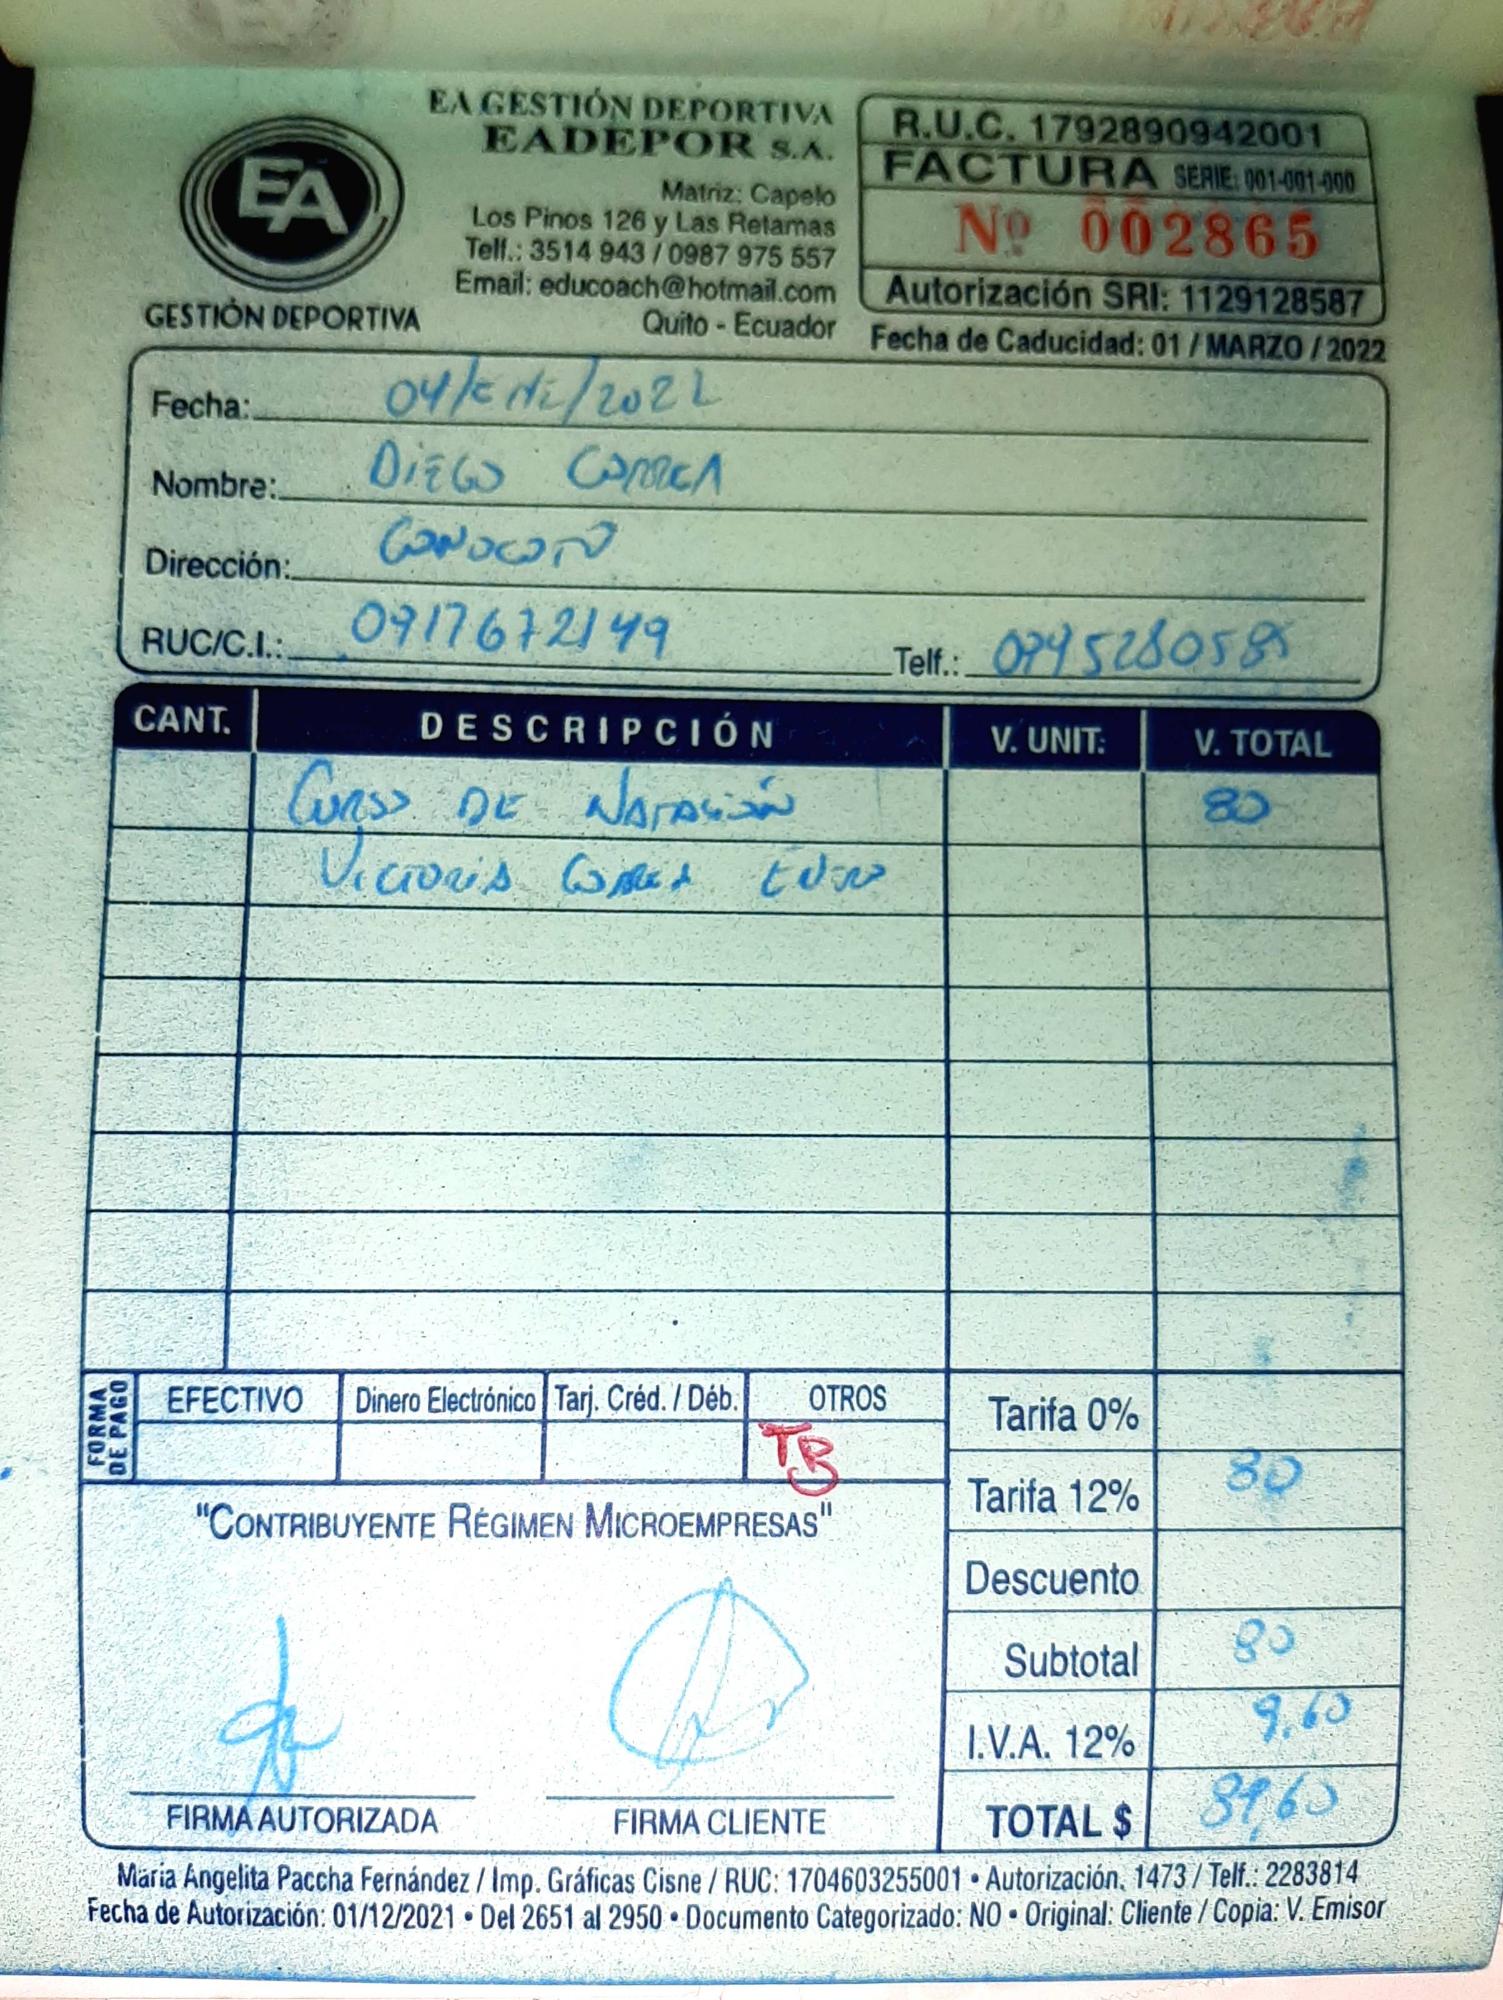 EA GESTIÓN DEPORTIVA
EADEPOR S.A.
Matriz: Capelo
Los Pinos 126 y Las Retamas
Telf.: 3514 943 / 0987 975 557
Email: educoach@hotmail.com
Quito - Ecuador
EA
GESTIÓN DEPORTIVA
R.U.C. 1792890942001
FACTURA SERIE: 001-001-000
Nº 002865
Autorización SRI: 1129128587
Fecha de Caducidad: 01 / MARZO / 2022
Fecha: 04/ENE/2022
Nombre: DIEGO CORREA
Dirección: CONOCOTO
RUC/C.I.: 0917672149 Telf.:
CANT. DESCRIPCIÓN V. UNIT: V. TOTAL
CURSO DE NATACIÓN 80
VICTORIA CORREA ENERO
FORMA DE PAGO
EFECTIVO Dinero Electrónico Tarj. Créd. / Déb. OTROS
TB
Tarifa 0%
Tarifa 12% 80
Descuento
Subtotal 80
I.V.A. 12% 9.60
TOTAL $ 89,60
"CONTRIBUYENTE RÉGIMEN MICROEMPRESAS"
FIRMA AUTORIZADA FIRMA CLIENTE
María Angelita Paccha Fernández / Imp. Gráficas Cisne / RUC: 1704603255001 • Autorización. 1473 / Telf.: 2283814
Fecha de Autorización: 01/12/2021 • Del 2651 al 2950 • Documento Categorizado: NO • Original: Cliente / Copia: V. Emisor